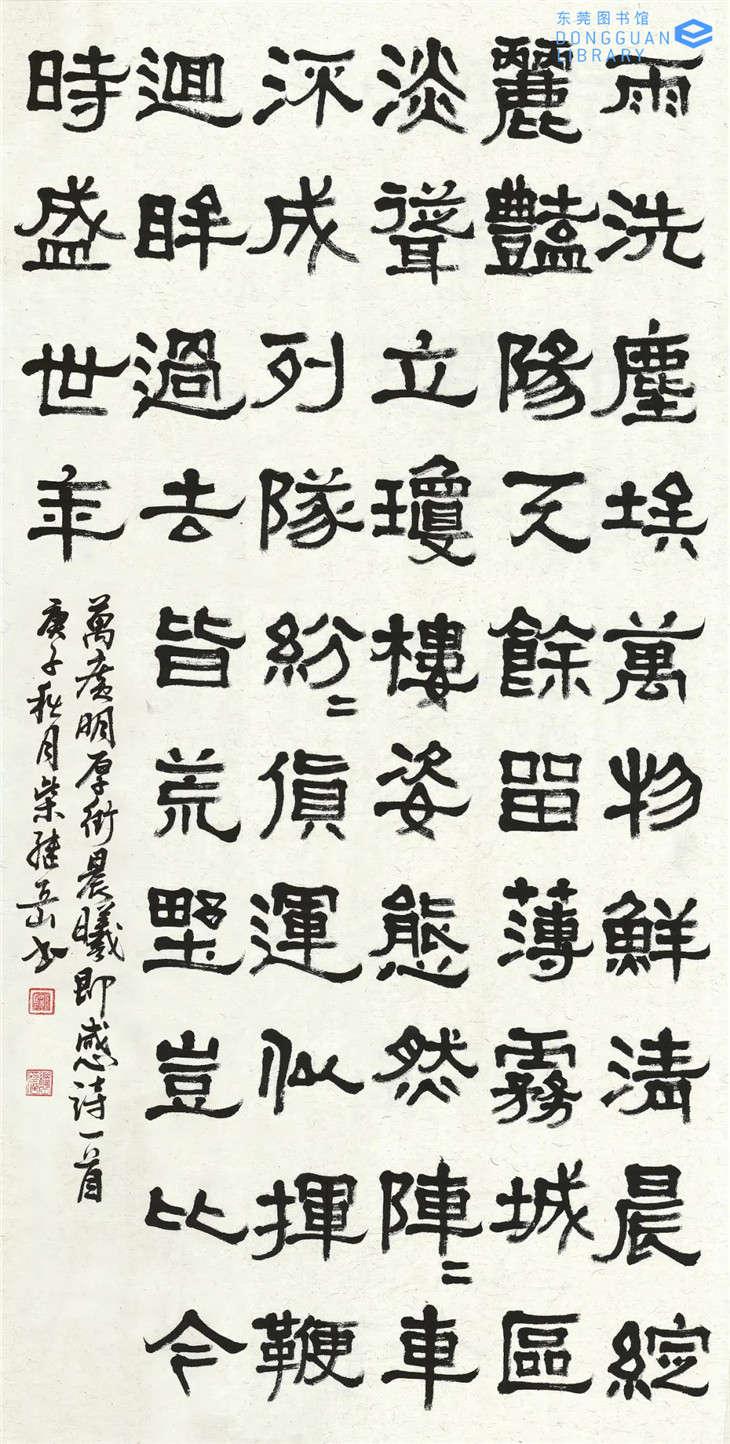 东莞图书馆
DONGGUAN
LIBRARY
雨洗塵埃萬物鮮清晨綻
麗豔陽天餘留薄霧城區
淡聳立瓊樓姿態然陣〻車
流成列隊紛〻貨運似揮鞭
迴眸過去皆荒野豈比今
時盛世年
萬廣明厚街晨曦即感詩一首
庚子秋月柴继岳书